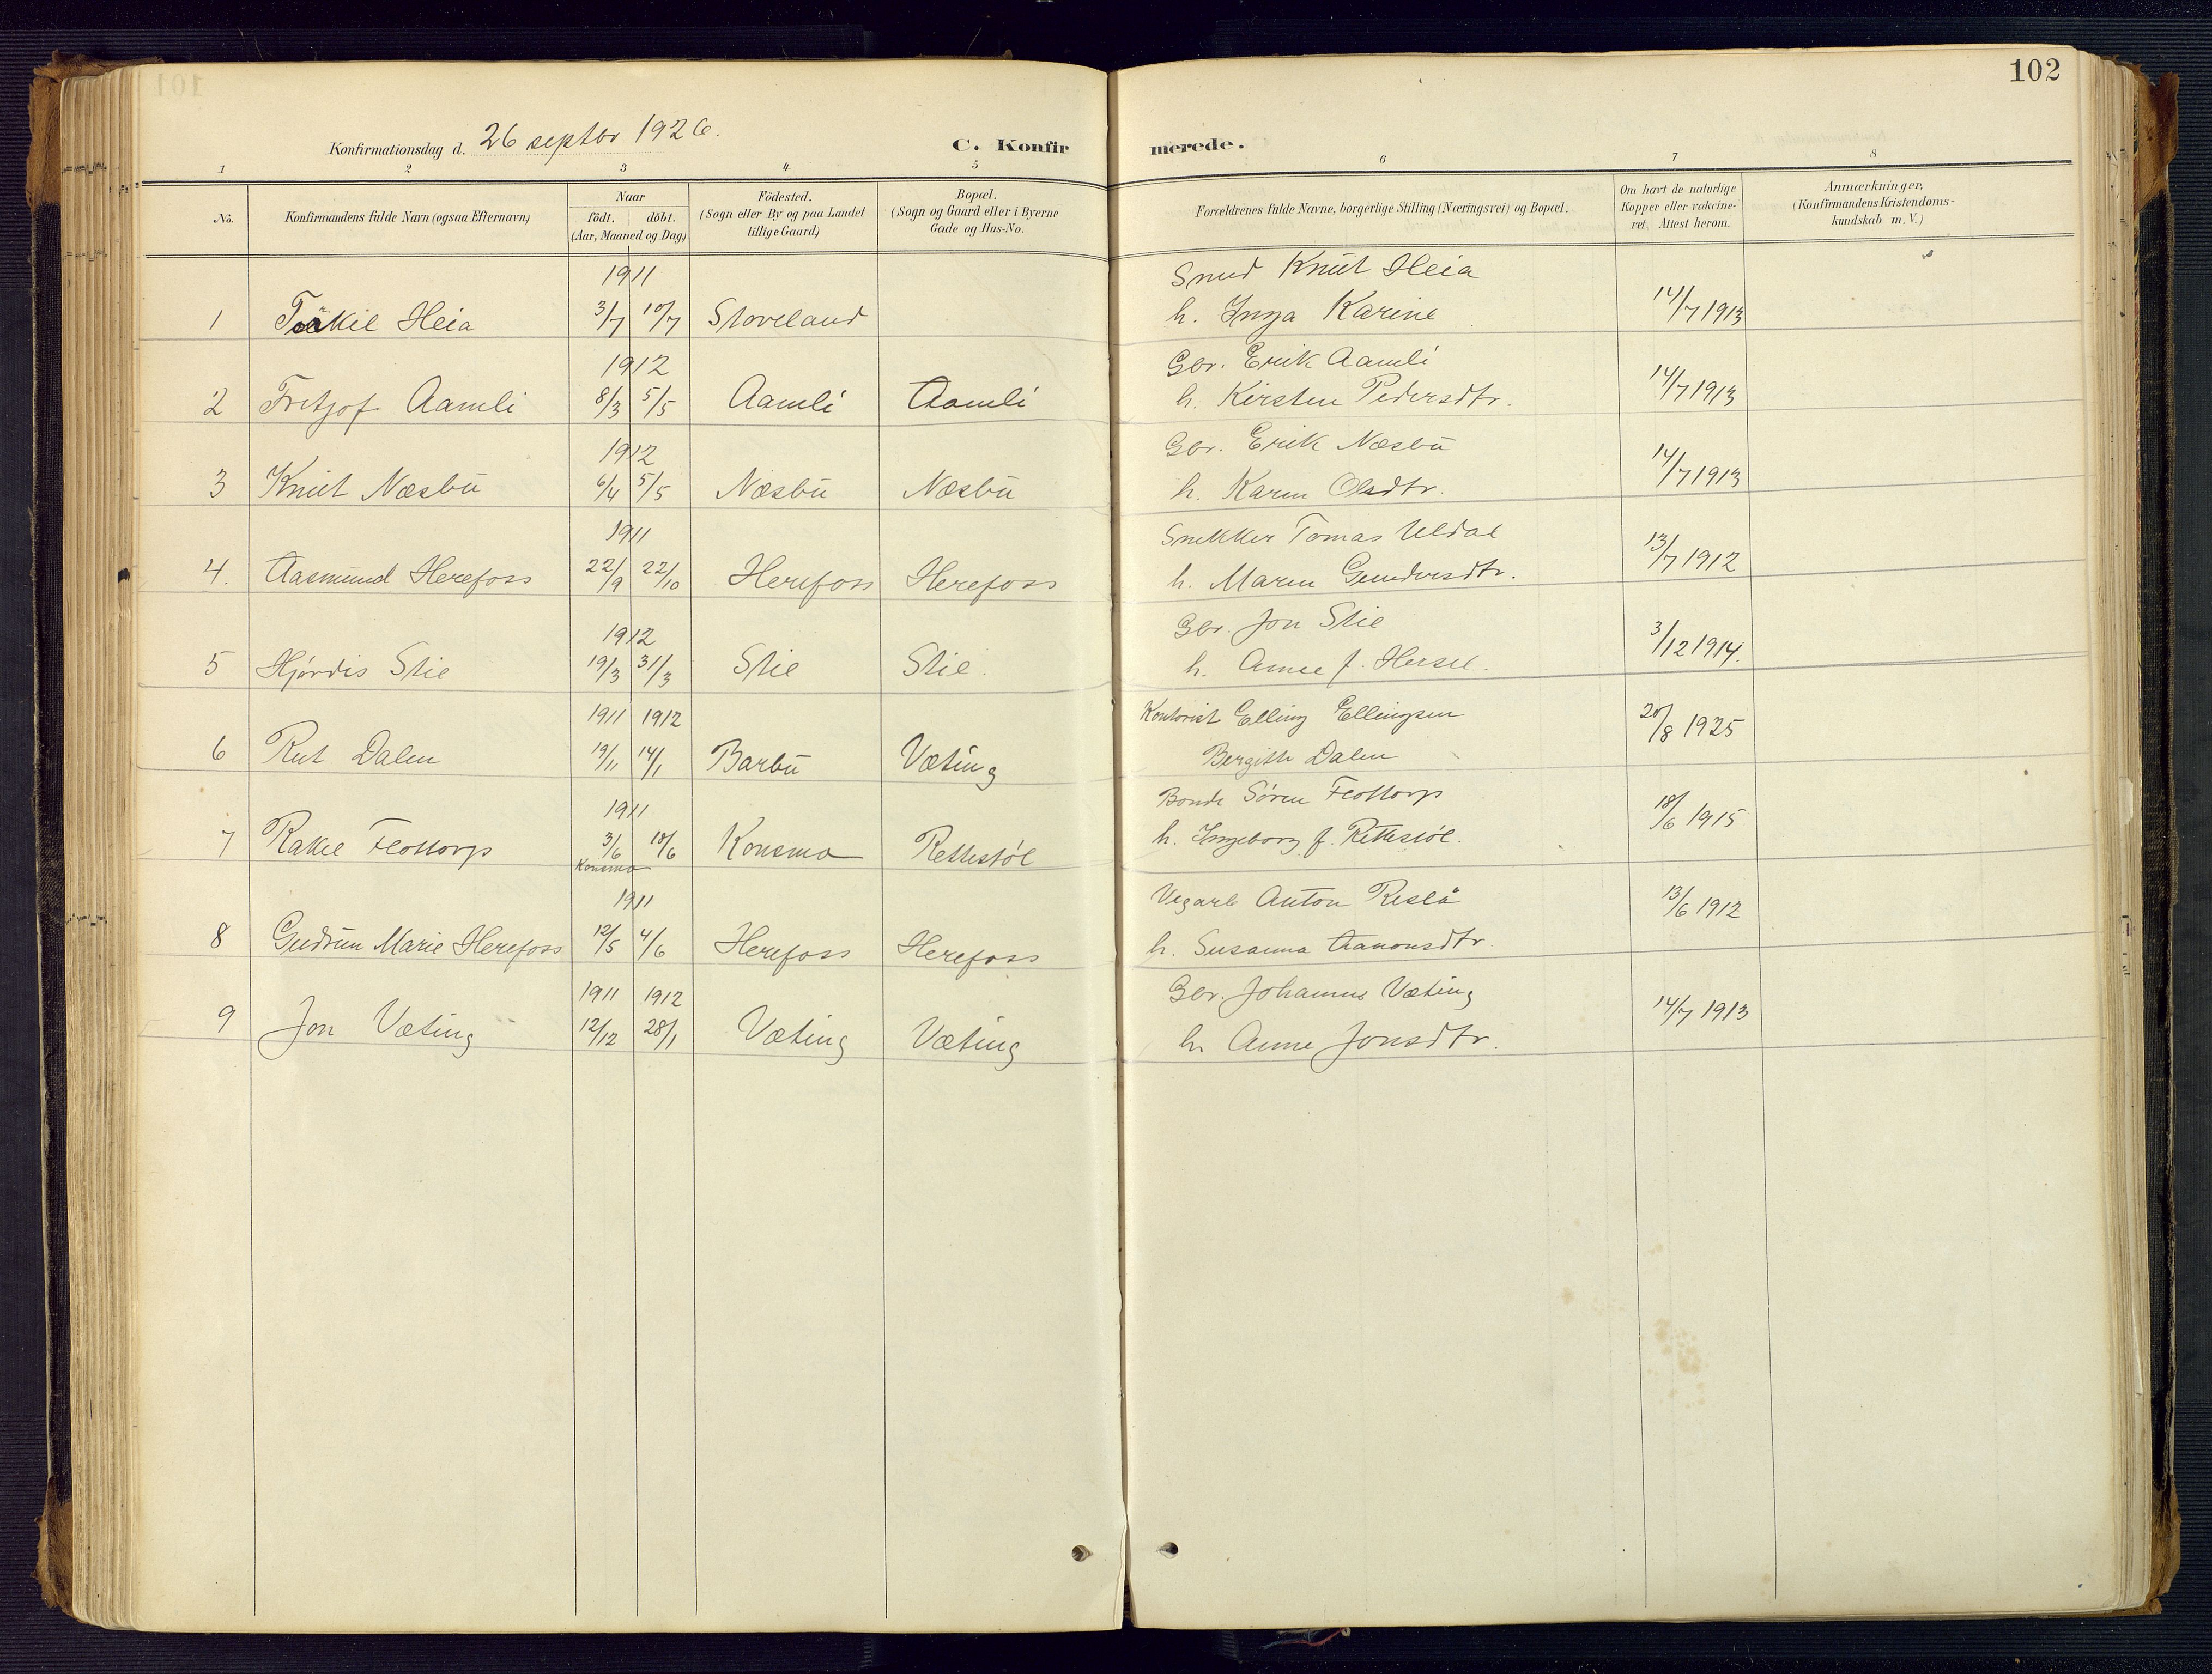 102
Konfirmationsdag d. 26 septbr 1926.
C. Konfirmerede.
1 2 3 4 5 6 7 8
No.
Konfirmandens fulde Navn (ogsaa Efternavn)
Naar
födt. döbt.
(Aar, Maaned og Dag)
Födested.
(Sogn eller By og paa Landet
tillige Gaard)
Bopæl.
(Sogn og Gaard eller i Byerne
Gade og Hus-No.
Forældrenes fulde Navne, borgerlige Stilling (Næringsvei) og Bopæl.
Om havt de naturlige
Kopper eller vakcine-
ret. Attest herom.
Anmærkninger.
(Konfirmandens Kristendoms-
kundskab m. V.)
1911 Smed Knut Heia
1 Heia 3/7 10/7 Stoveland h. Inga Karine 14/7 1913
1912 Gbr. Erik Aamli
2 Fritjof Aamli 8/3 5/5 Aamli Aamli h. Kirsten Pedersdtr. 14/7 1913
1912 Gbr. Erik Næsbu
3 Knut Næsbu 6/4 5/5 Næsbu Næsbu h. Karen Olsdtr. 14/7 1913
1911 Snekker Tomas Uldal
4. Aasmund Herefoss 22/9 22/10 Herefoss Herefoss h. Maren Gundersdtr. 13/7 1912
1912 Gbr. Jon Stie
5 Hjørdis Stie 19/3 31/3 Stie Stie. h. Anne f. 3/12 1914.
1911 1912 Kontorist Elling Ellingsen
6 Rut Dalen 19/11 14/1 Barbu Væting Bergith Dalen 20/8 1925
1911 Bonde Søren Flottorp
7 Rakel Flottorp 3/6 18/6 Konsmo Rettestøl h. Ingeborg f. Rettestøl. 18/6 1915
Konsmo
1911 Vegarb Anton Reslå
8 Gudrun Marie Herefoss 12/5 4/6 Herefoss Herefoss h. Susanna Aanonsdtr. 13/6 1912
1911 1912 Gbr. Johannes Væting
9 Jon Væting 12/12 28/1 Væting Væting h. Anne Jonsdtr. 14/7 1913